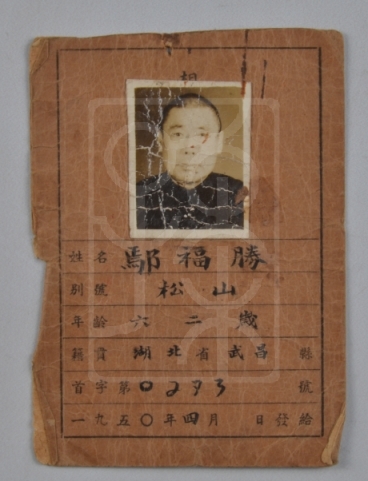 相
姓名 鄢福勝
別號 松山
年齡 六二歲
籍貫 湖北省武昌縣
首字第0293號
一九五〇年四月 日發給